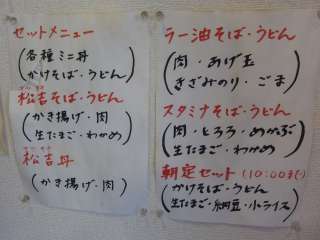 セットメニュー
(各種ミニ丼
かけそば・うどん)
松吉そば・うどん
(かき揚げ・肉
生たまご・わかめ)
松吉丼
(かき揚げ・肉)
ラー油そば・うどん
(肉・あげ玉
きざみのり・ごま)
スタミナそば・うどん
(肉・とろろ・めかぶ
生たまご・わかめ)
朝定セット(10:00まで)
(かけそば・うどん
生たまご・納豆・小ライス)